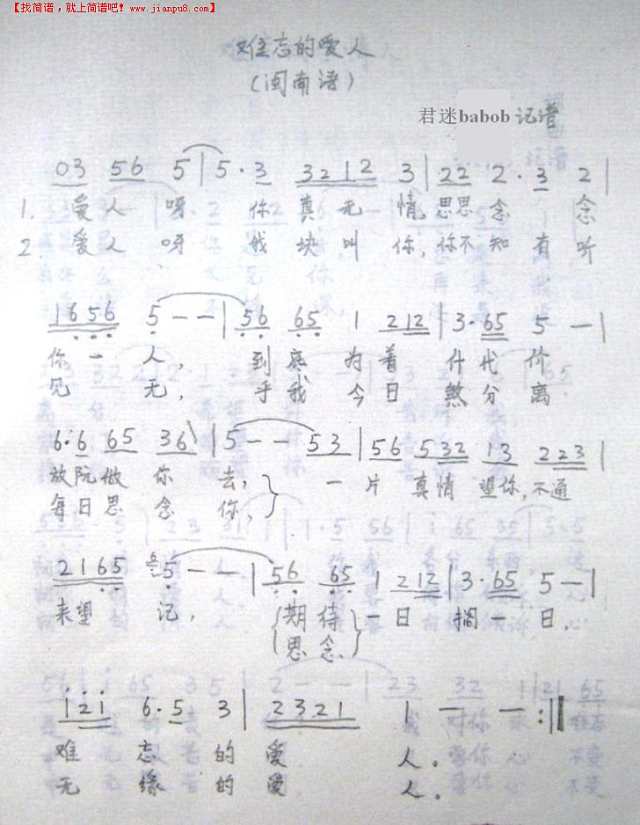 【找简谱，就上简谱吧! www.jianpu8.com】
难忘的爱人
(闽南语)
君迷babob 记谱
03 56 5 | 5·3 3212 3 | 22 2·3 2 |
1. 爱人呀 你真无情,思思念念
2. 爱人呀 我块叫你,你不知有听
1656 5 - - | 56 65 1 212 | 3·65 5 - |
你一人, 到底为着什代价
见无, 乎我今日煞分离
6·6 65 36 | 5 - - 53 | 56 532 13 223 |
放阮做你去, 一片真情望你,不通
每日思念你,
2165 5 - - | 56 65 1 212 | 3·65 5 - |
来望记, 期待一日搁一日.
思念
121 6·5 3 | 2321 1 - - :‖
难忘的爱人.
无缘的爱人.